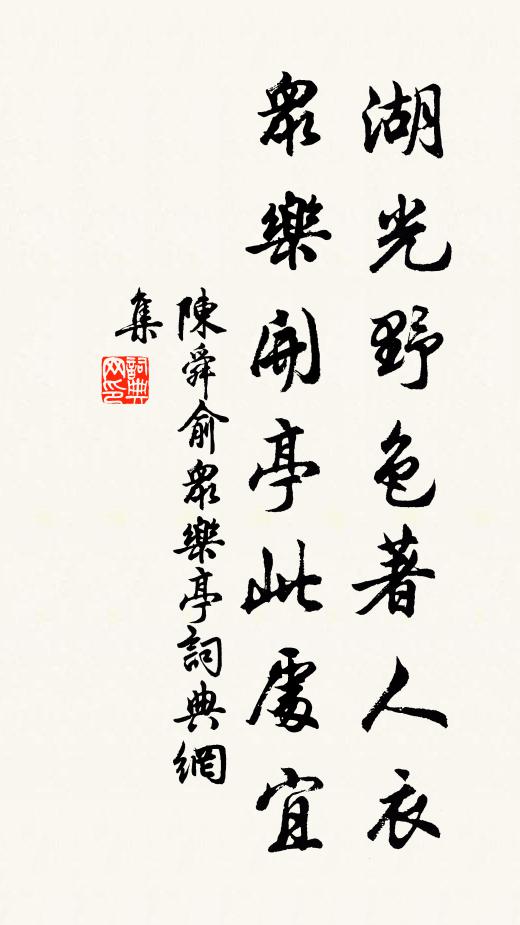 湖光野色著人衣
衆樂開亭此處宜
陳舜俞衆樂亭詞典網
集
詞典
网印